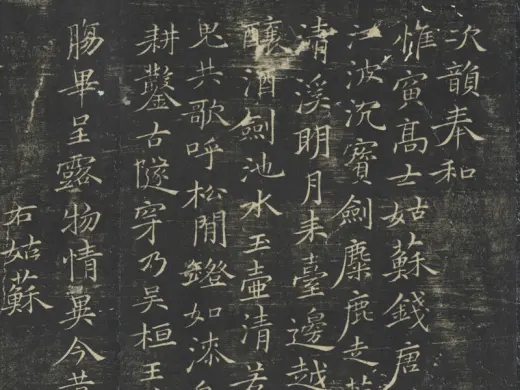 次韻奉和
惟寅高士姑蘇錢唐
江波沉寶劍麋鹿走
清溪明月来臺邊越
釀酒劍池水玉壺清若
鬼共歌呼松間鐙如漆
耕鑿古隧穿乃吴桓王
畢呈露物情異今昔
右姑蘇